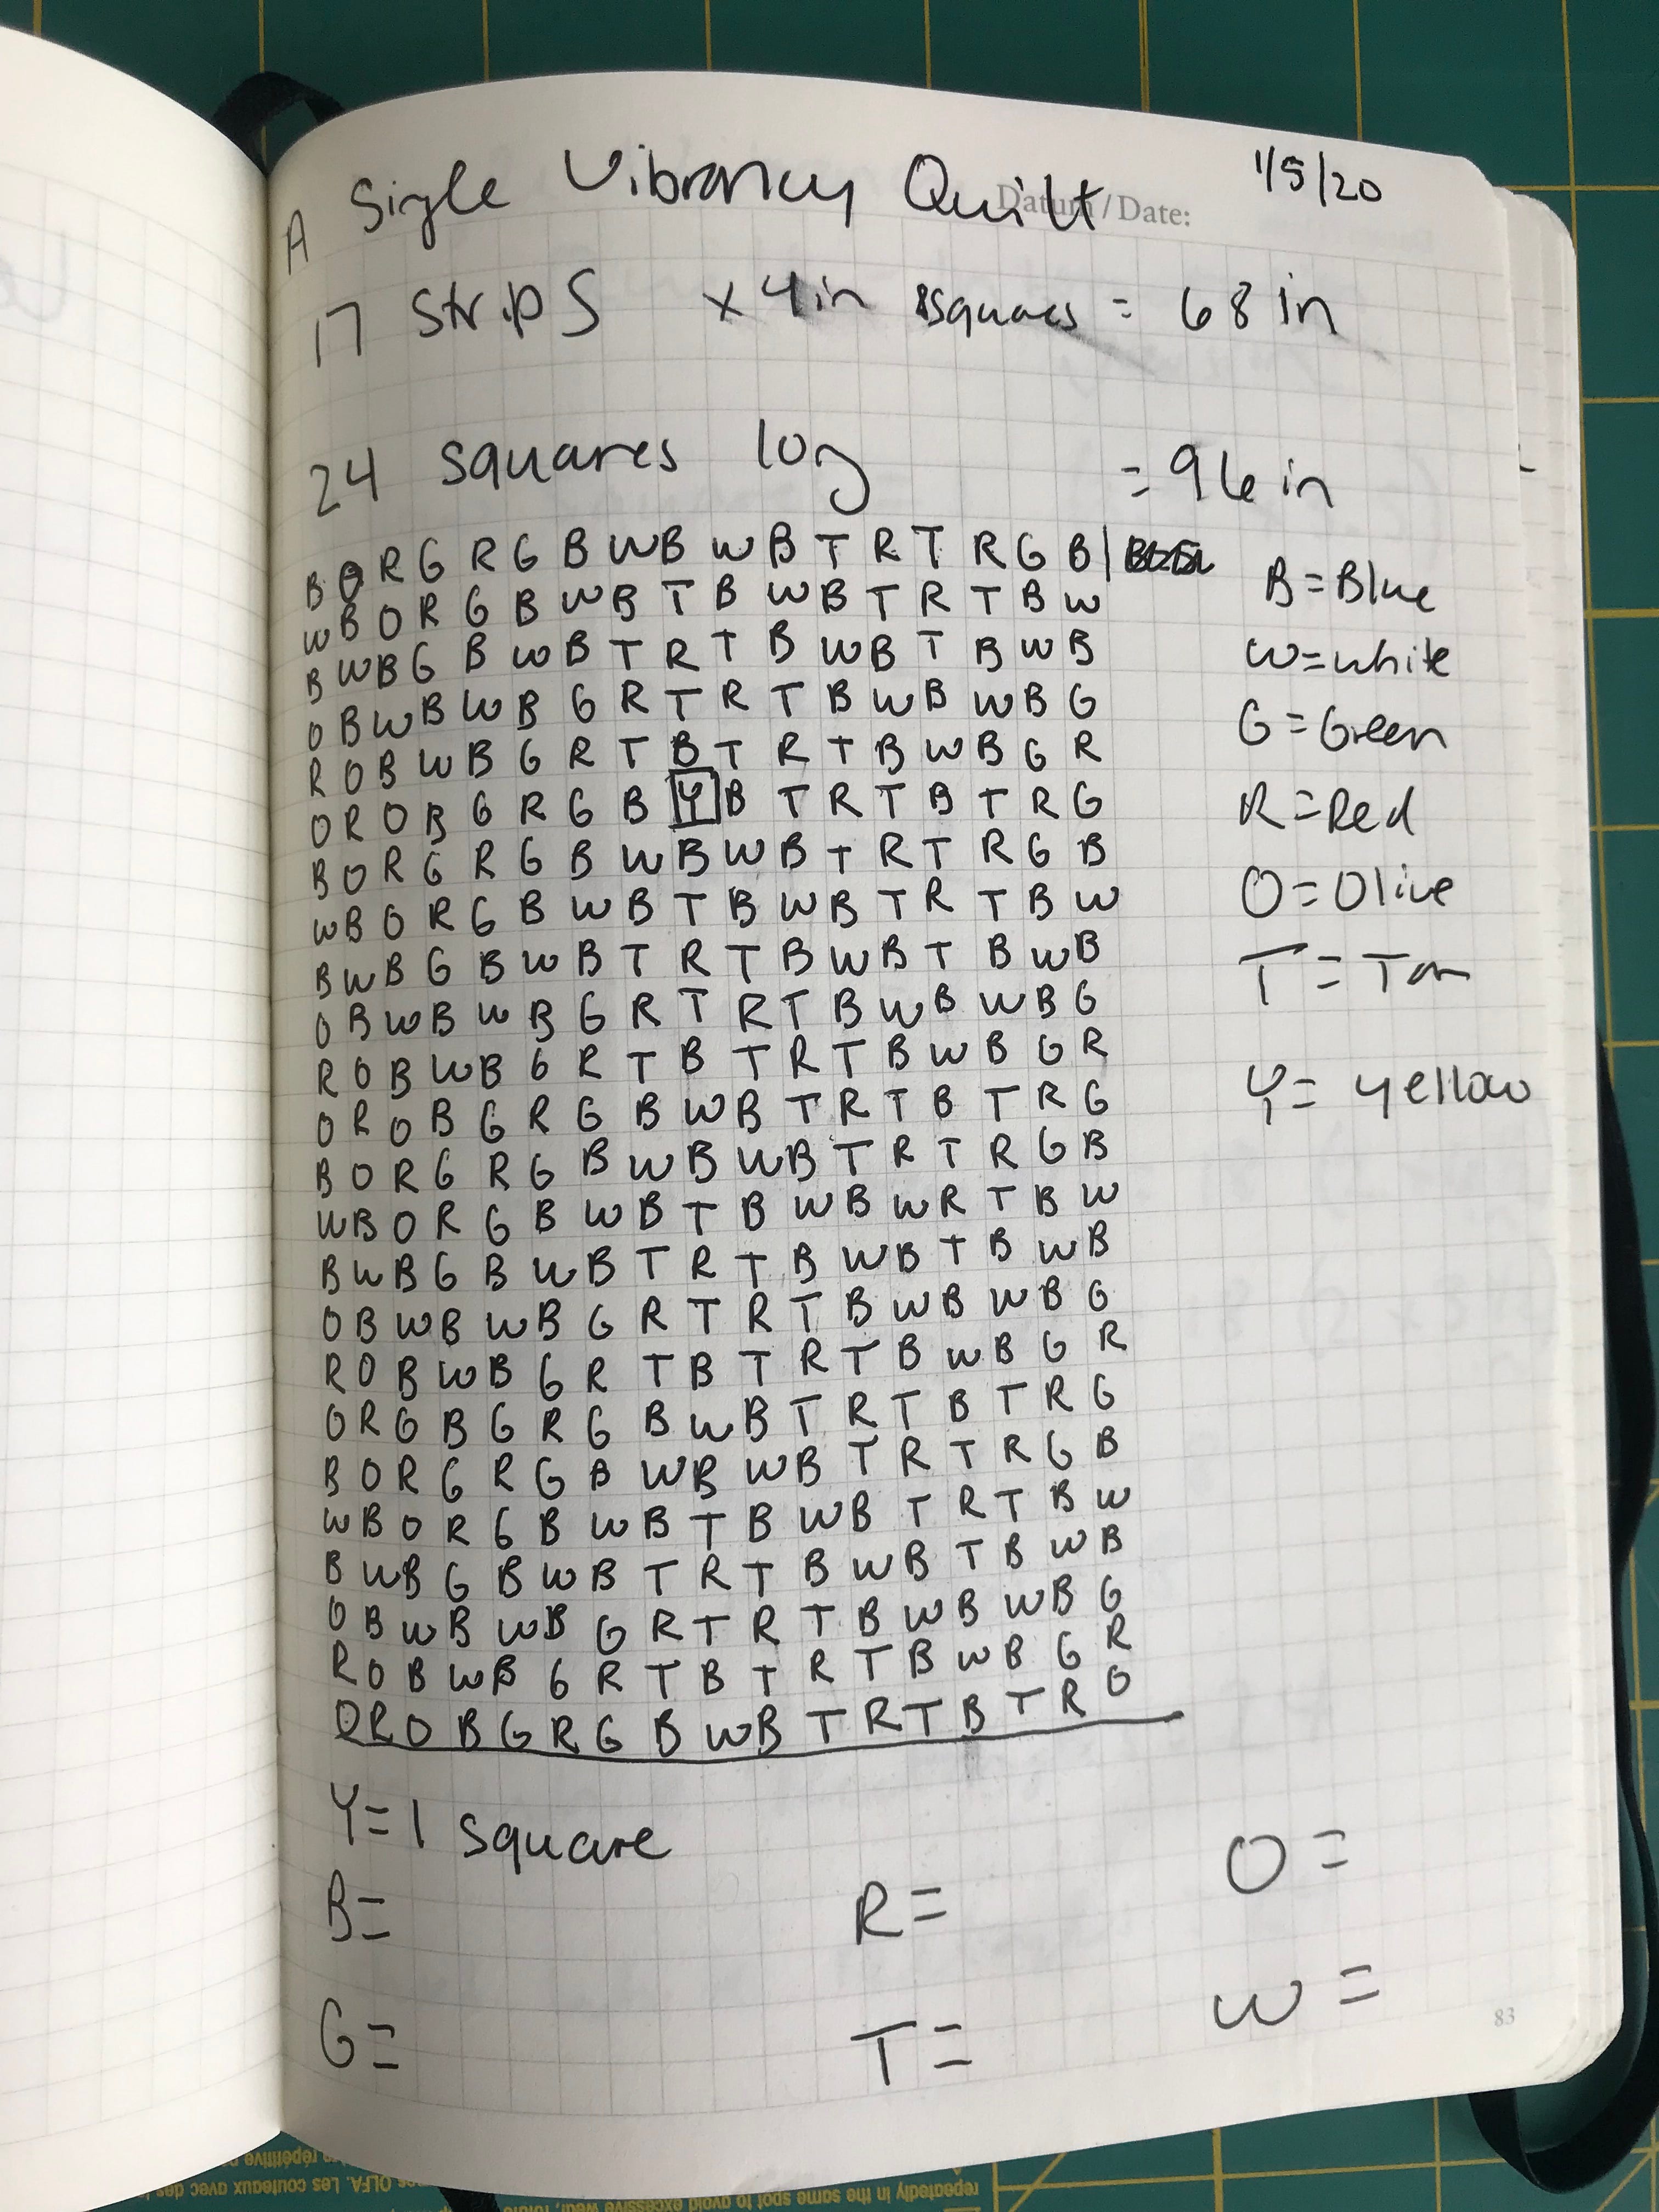 A Single Vibrancy Quilt Datum / Date: 1/5/20
17 Strips x 4in squares = 68 in
24 squares long = 96 in
B O R G R G B W B W B T R T R G B |
W B O R G B W B T B W B T R T B W
B W B G B W B T R T B W B T B W B
O B W B W B G R T R T B W B W B G
R O B W B G R T B T R T B W B G R
O R O B G R G B Y B T R T B T R G
B O R G R G B W B W B T R T R G B
W B O R G B W B T B W B T R T B W
B W B G B W B T R T B W B T B W B
O B W B W B G R T R T B W B W B G
R O B W B G R T B T R T B W B G R
O R O B G R G B W B T R T B T R G
B O R G R G B W B W B T R T R G B
W B O R G B W B T B W B W R T B W
B W B G B W B T R T B W B T B W B
O B W B W B G R T R T B W B W B G
R O B W B G R T B T R T B W B G R
O R G B G R G B W B T R T B T R G
B O R G R G B W B W B T R T R G B
W B O R G B W B T B W B T R T B W
B W B G B W B T R T B W B T B W B
O B W B W B G R T R T B W B W B G
R O B W B G R T B T R T B W B G R
O R O B G R G B W B T R T B T R G
B = Blue
W = white
G = Green
R = Red
O = Olive
T = Tan
Y = yellow
Y = 1 square
B =
R =
O =
G =
T =
W =
83
repeatedly in the same spot to avoid excessive wear,
OLFA. Les couteaux avec des